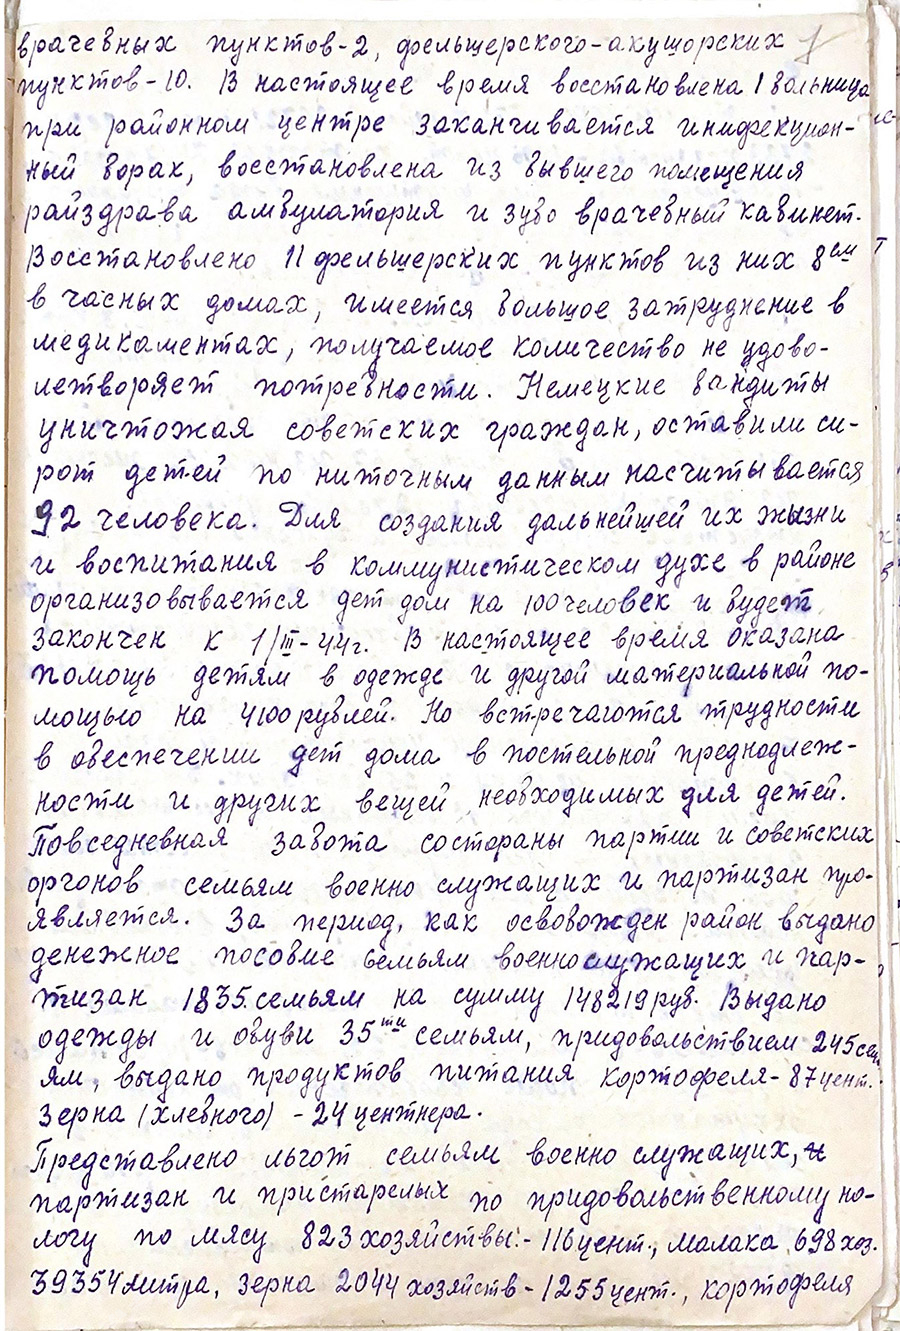 врачебных пунктов-2, фельшерского-акушорских
пунктов-10. В настоящее время восстановлена 1 больница
при районном центре заканчивается инифекцион-
ный борак, восстановлена из бывшего помещения
райздрава амбулатория и зубо врачебный кабинет.
Восстановлено 11 фельшерских пунктов из них 8ем
в часных домах, имеется большое затруднение в
медикаментах, получаемое количество не удово-
летворяет потребности. Немецкие бандиты
уничтожая советских граждан, оставили си-
рот детей по ниточным данным насчитывается
92 человека. Для создания дальнейшей их жызни
и воспитания в коммунистическом духе в районе
организовывается дет дом на 100 человек и будет
закончен к 1/III-44г. В настоящее время оказана
помощь детям в одежде и другой материальной по-
мощью на 4100 рублей. Но встречаются трудности
в обеспечении дет дома в постельной преднодлеж-
ности и других вещей необходимых для детей.
Повседневная забота состораны партии и советских
оргонов семьям военно служащих и партизан про-
является. За период, как освобожден район выдано
денежное пособие семьям военнослужащих и пар-
тизан 1835 семьям на сумму 148219 руб. Выдано
одежды и обуви 35ти семьям, придовольствием 245 сем
ям, выдано продуктов питания кортофеля-87 цент.
Зерна (хлебного) - 24 центнера.
Представлено льгот семьям военно служащих,
партизан и пристарелых по придовольственному но-
логу по мясу 823 хозяйствы.-116 цент., малака 698 хоз.
39354 литра, зерна 2044 хозяйств-1255 цент., кортофеля